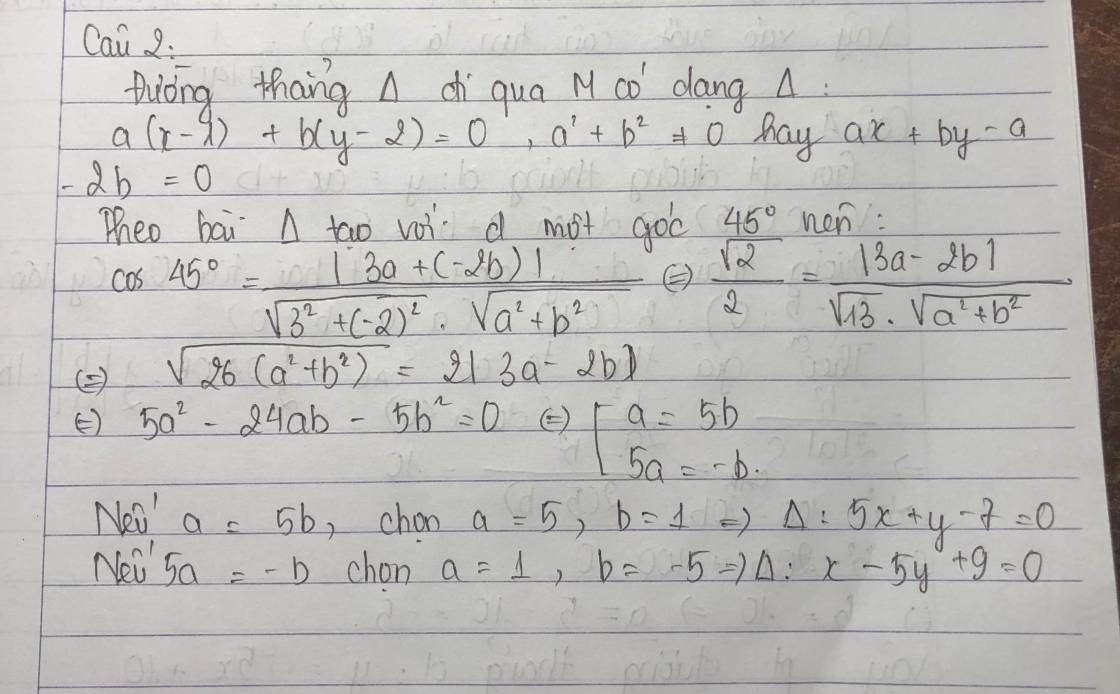 Câu 2:
Đường thẳng Δ đi qua M có dạng Δ:
a(x-1) + b(y-2) = 0, a² + b² ≠ 0 hay ax + by - a
- 2b = 0
Theo bài Δ tạo với d một góc 45° nên:
cos 45° = |3a + (-2b)| / √(3² + (-2)²) . √(a² + b²) ⇔ √2 / 2 = |3a - 2b| / √13 . √(a² + b²)
⇔ √(26(a² + b²)) = 2|3a - 2b|
⇔ 5a² - 24ab - 5b² = 0 ⇔ [ a = 5b
5a = -b.
Nếu a = 5b, chọn a = 5, b = 1 ⇒ Δ: 5x + y - 7 = 0
Nếu 5a = -b chọn a = 1, b = -5 ⇒ Δ: x - 5y + 9 = 0